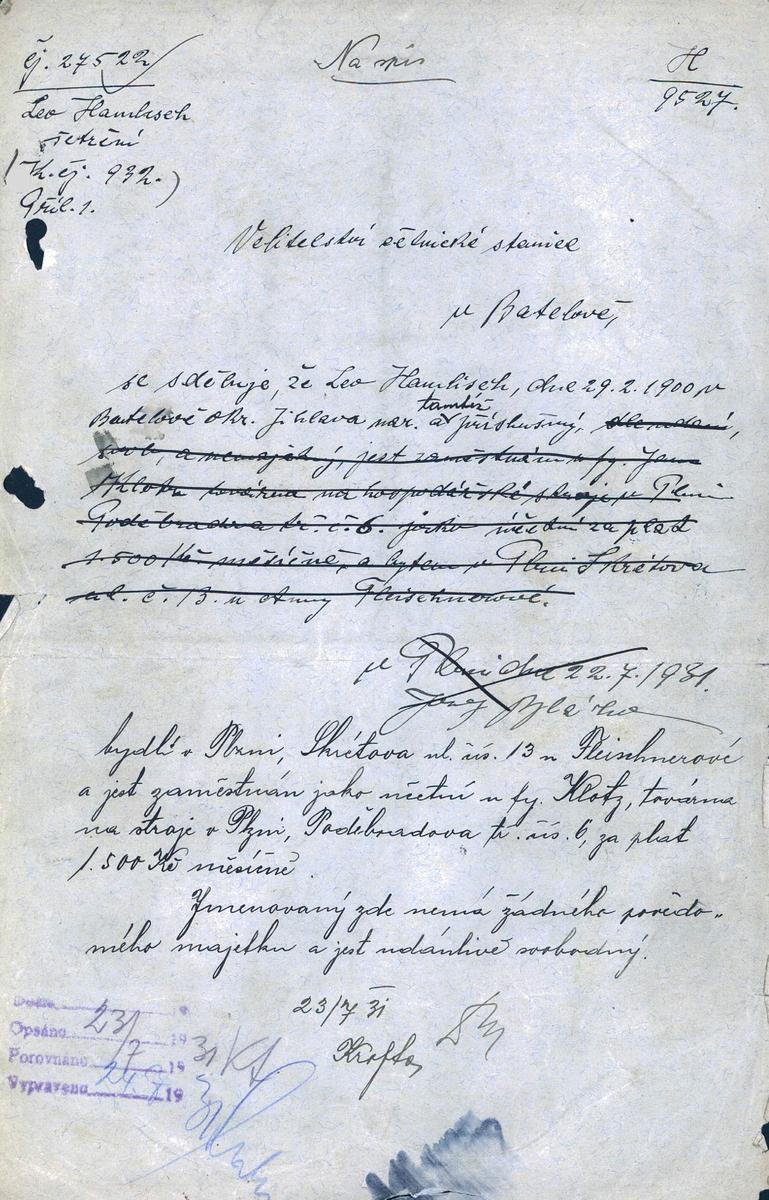 čj. 27522
Na spis
H
9527.
Leo Hamlisch
šetření
(K. čj. 932.)
Příl. 1.
Velitelství četnické stanice
v Batelově,
se sděluje, že Leo Hamlisch, dne 29.2.1900 v
Batelově okr. Jihlava nar. a tamtéž příslušný,
a nemajetný, jest zaměstnán u fy. Jan
Klotz továrna na hospodářské stroje v Plzni
Poděbradova tř. č. 6. jako účetní za plat
1.500 Kč měsíčně, a bytem v Plzni Skrétova
ul. č. 13. u Anny Fleischnerové.
V Plzni dne 22.7.1931.
Josef
bydlí v Plzni, Skrétova ul. čís. 13 u Fleischnerové
a jest zaměstnán jako účetní u fy. Klotz, továrna
na stroje v Plzni, Poděbradova tř. čís. 6, za plat
1.500 Kč měsíčně.
Jmenovaný zde nemá žádného povědo-
mého majetku a jest udánlivě svobodný.
23/7 31
Krofta
Došlo 19
Opsáno 23/ 19 31
Porovnáno /7 19
Vypraveno 24.7 19